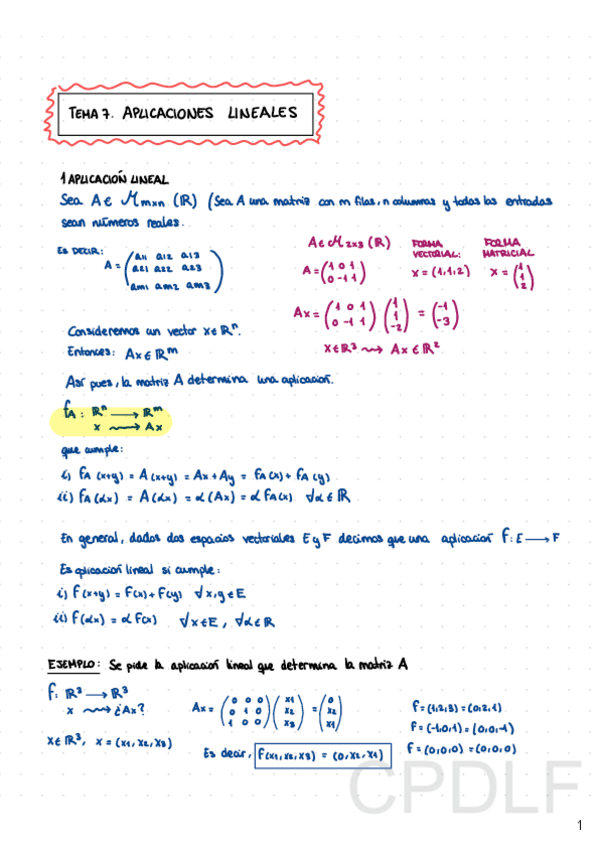 TEMA 7. APLICACIONES LINEALES
1 APLICACIÓN LINEAL
Sea A ∈ Mmxn (R) (Sea A una matriz con m filas, n columnas y todas las entradas
sean números reales.
ES DECIR: A = (a11 a12 a13
a21 a22 a23
am1 am2 am3)
A ∈ M2x3 (R) FORMA VECTORIAL: FORMA MATRICIAL
A = (1 0 1
0 -1 1) x = (1,1,2) x = (1
1
2)
Ax = (1 0 1
0 -1 1) (1
1
-2) = (-1
-3)
x ∈ R³ ⟿ Ax ∈ R²
Consideremos un vector x ∈ Rⁿ.
Entonces: Ax ∈ Rᵐ
Así pues, la matriz A determina una aplicación.
fA : Rⁿ ⟶ Rᵐ
x ⟿ Ax
que cumple:
i) fA (x+y) = A(x+y) = Ax + Ay = fA(x) + fA(y)
ii) fA(αx) = A(αx) = α(Ax) = α fA(x) ∀α ∈ R
En general, dados dos espacios vectoriales E y F decimos que una aplicación f: E ⟶ F
Es aplicación lineal si cumple:
i) f(x+y) = f(x) + f(y) ∀x,y ∈ E
ii) f(αx) = α f(x) ∀x ∈ E, ∀α ∈ R
EJEMPLO: Se pide la aplicación lineal que determina la matriz A
f: R³ ⟶ R³
x ⟿ ¿Ax?
x ∈ R³, x = (x1, x2, x3)
Ax = (0 0 0
0 1 0
1 0 0) (x1
x2
x3) = (0
x2
x1)
Es decir, f(x1, x2, x3) = (0, x2, x1)
f = (1,2,3) = (0,2,1)
f = (-1,0,1) = (0,0,-1)
f = (0,0,0) = (0,0,0)
CPDLF
1